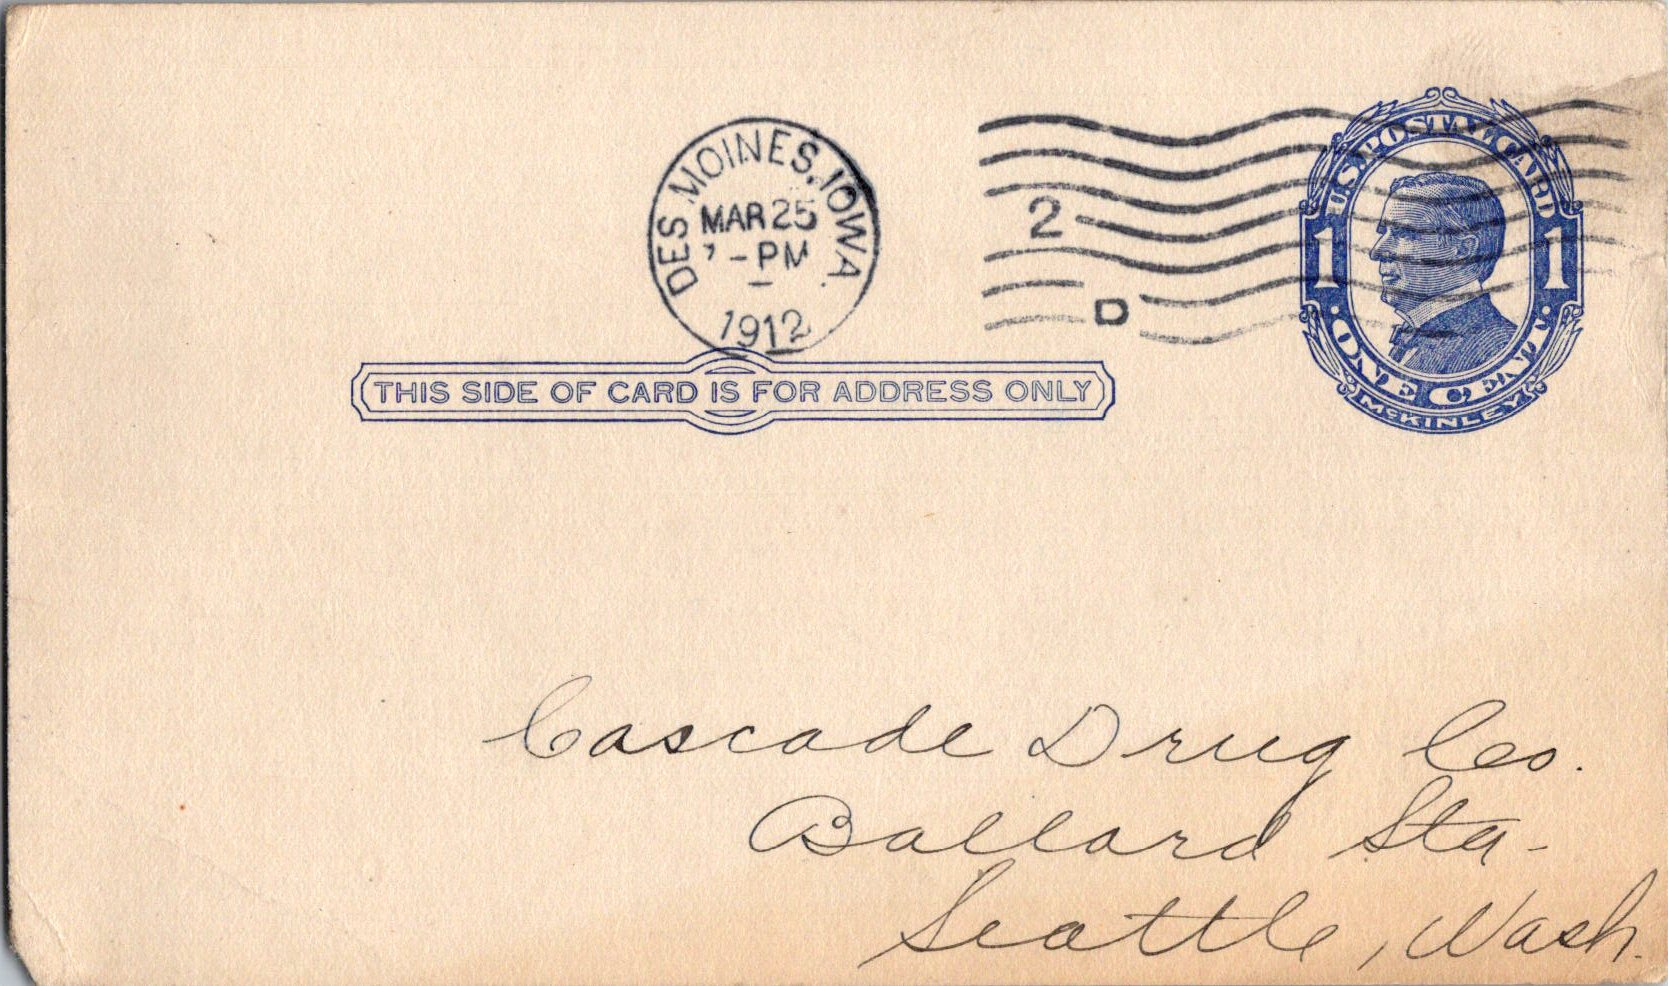 DES MOINES, IOWA.
MAR 25
7 - PM
1912
2
D
U.S. POSTAL CARD
1 1
ONE CENT
McKINLEY
THIS SIDE OF CARD IS FOR ADDRESS ONLY
Cascade Drug Co.
Ballard Sta-
Seattle, Wash.